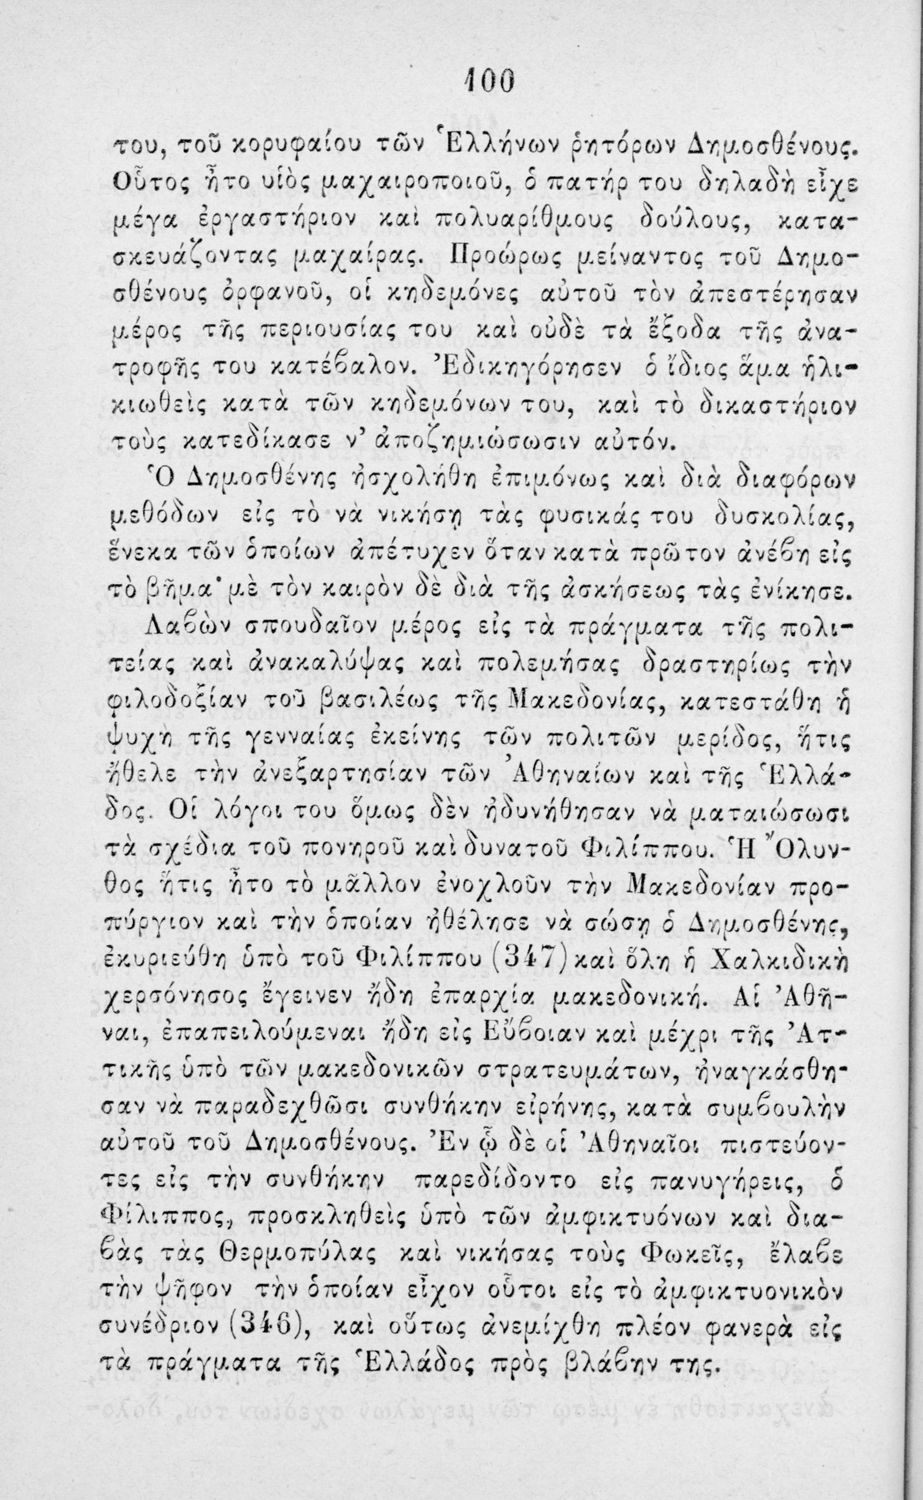 100
του, τοῦ κορυφαίου τῶν Ἑλλήνων ῥητόρων Δημοσθένους.
Οὗτος ἦτο υἱὸς μαχαιροποιοῦ, ὁ πατήρ του δηλαδὴ εἶχε
μέγα ἐργαστήριον καὶ πολυαρίθμους δούλους, κατα-
σκευάζοντας μαχαίρας. Προώρως μείναντος τοῦ Δημο-
σθένους ὀρφανοῦ, οἱ κηδεμόνες αὐτοῦ τὸν ἀπεστέρησαν
μέρος τῆς περιουσίας του καὶ οὐδὲ τὰ ἔξοδα τῆς ἀνα-
τροφῆς του κατέϐαλον. Ἐδικηγόρησεν ὁ ἴδιος ἅμα ἡλι-
κιωθεὶς κατὰ τῶν κηδεμόνων του, καὶ τὸ δικαστήριον
τοὺς κατεδίκασε ν' ἀποζημιώσωσιν αὐτόν.
Ὁ Δημοσθένης ἠσχολήθη ἐπιμόνως καὶ διὰ διαφόρων
μεθόδων εἰς τὸ νὰ νικήσῃ τὰς φυσικάς του δυσκολίας,
ἕνεκα τῶν ὁποίων ἀπέτυχεν ὅταν κατὰ πρῶτον ἀνέϐη εἰς
τὸ βῆμα· μὲ τὸν καιρὸν δὲ διὰ τῆς ἀσκήσεως τὰς ἐνίκησε.
Λαϐὼν σπουδαῖον μέρος εἰς τὰ πράγματα τῆς πολι-
τείας καὶ ἀνακαλύψας καὶ πολεμήσας δραστηρίως τὴν
φιλοδοξίαν τοῦ βασιλέως τῆς Μακεδονίας, κατεστάθη ἡ
ψυχὴ τῆς γενναίας ἐκείνης τῶν πολιτῶν μερίδος, ἥτις
ἤθελε τὴν ἀνεξαρτησίαν τῶν Ἀθηναίων καὶ τῆς Ἑλλά-
δος. Οἱ λόγοι του ὅμως δὲν ἠδυνήθησαν νὰ ματαιώσωσι
τὰ σχέδια τοῦ πονηροῦ καὶ δυνατοῦ Φιλίππου. Ἡ Ὄλυν-
θος ἥτις ἦτο τὸ μᾶλλον ἐνοχλοῦν τὴν Μακεδονίαν προ-
πύργιον καὶ τὴν ὁποίαν ἠθέλησε νὰ σώσῃ ὁ Δημοσθένης,
ἐκυριεύθη ὑπὸ τοῦ Φιλίππου (347) καὶ ὅλη ἡ Χαλκιδικὴ
χερσόνησος ἔγεινεν ἤδη ἐπαρχία μακεδονική. Αἱ Ἀθῆ-
ναι, ἐπαπειλούμεναι ἤδη εἰς Εὔϐοιαν καὶ μέχρι τῆς Ἀτ-
τικῆς ὑπὸ τῶν μακεδονικῶν στρατευμάτων, ἠναγκάσθη-
σαν νὰ παραδεχθῶσι συνθήκην εἰρήνης, κατὰ συμϐουλὴν
αὐτοῦ τοῦ Δημοσθένους. Ἐν ᾧ δὲ οἱ Ἀθηναῖοι πιστεύον-
τες εἰς τὴν συνθήκην παρεδίδοντο εἰς πανυγήρεις, ὁ
Φίλιππος, προσκληθεὶς ὑπὸ τῶν ἀμφικτυόνων καὶ δια-
ϐὰς τὰς Θερμοπύλας καὶ νικήσας τοὺς Φωκεῖς, ἔλαϐε
τὴν ψῆφον τὴν ὁποίαν εἶχον οὗτοι εἰς τὸ ἀμφικτυονικὸν
συνέδριον (346), καὶ οὕτως ἀνεμίχθη πλέον φανερὰ εἰς
τὰ πράγματα τῆς Ἑλλάδος πρὸς βλάϐην της.